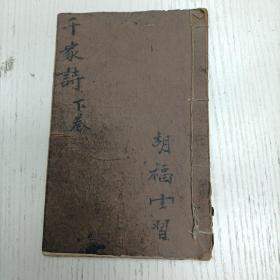 千家詩下卷
胡福士習